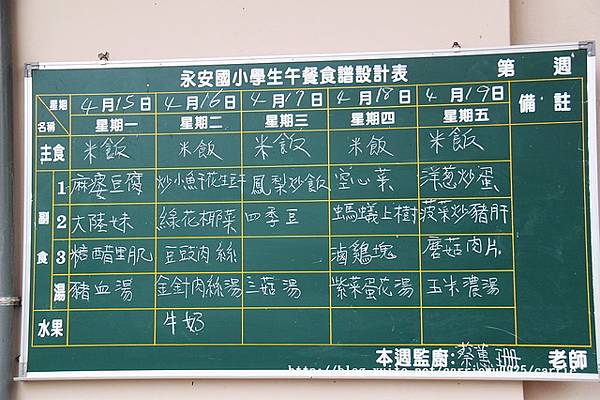 永安國小學生午餐食譜設計表 第 週
星期 名稱 4月15日 4月16日 4月17日 4月18日 4月19日 備註
星期一 星期二 星期三 星期四 星期五
主食 米飯 米飯 米飯 米飯 米飯
副食 1 麻婆豆腐 炒小魚干花生豆干 鳳梨炒飯 空心菜 洋葱炒蛋
2 大陸妹 綠花椰菜 四季豆 螞蟻上樹 菠菜炒豬肝
3 糖醋里肌 豆豉肉絲 滷鷄塊 磨菇肉片
湯 豬血湯 金針肉絲湯 三菇湯 紫菜蛋花湯 玉米濃湯
水果 牛奶
本週監廚:蔡蕙珊 老師